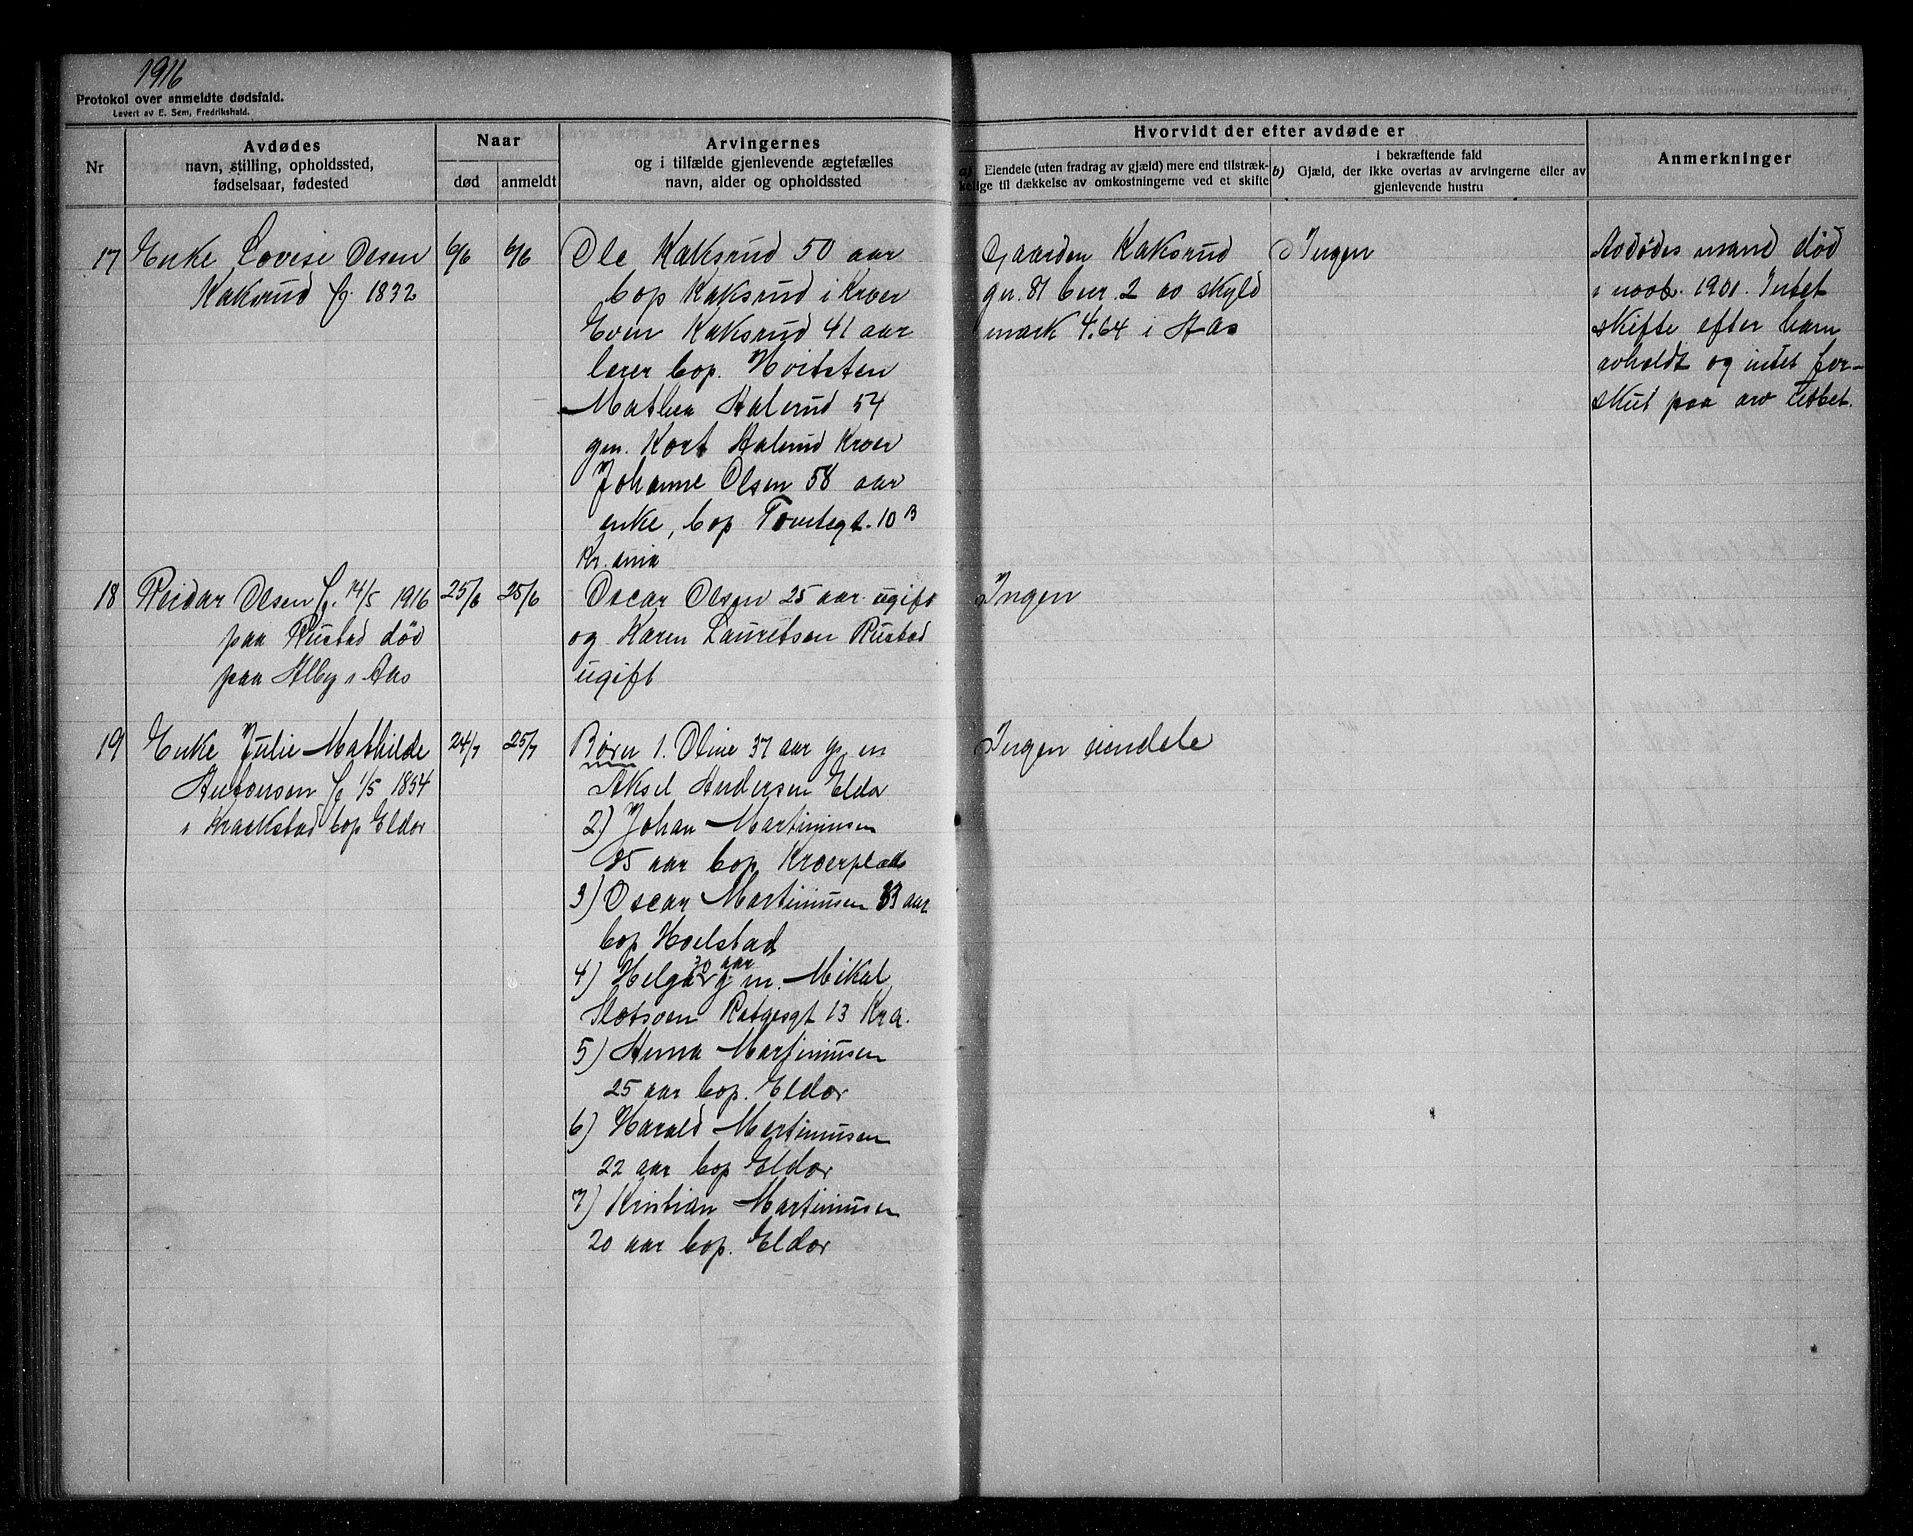 1916
Protokol over anmeldte dødsfald.
Levert av E. Sem, Fredrikshald.
Nr
Avdødes
navn, stilling, opholdssted,
fødselsaar, fødested
Naar
død
anmeldt
Arvingernes
og i tilfælde gjenlevende ægtefælles
navn, alder og opholdssted
Hvorvidt der efter avdøde er
a) Eiendele (uten fradrag av gjæld) mere end tilstræk-
kelige til dækkelse av omkostningerne ved et skifte
I bekræftende fald
b) Gjæld, der ikke overtas av arvingerne eller av
gjenlevende hustru
Anmerkninger
17 Enke Lovise Olsen
Kaksrud f. 1832
6/6
6/6
Ole Kaksrud 50 aar
bop Kaksrud i Kroer
Even Kaksrud 41 aar
lærer bop. Hvitsten
Mathea Aalerud 54
gm. Kort Aalerud Kroer
Johanne Olsen 58 aar
enke, bop Tovtegt. 10 B
Kr.ania
Gaarden Kaksrud
gn. 81 bnr. 2 av skyld
mark 4.64 i Aas
Ingen
Avdødes mand død
i novb. 1901. Intet
skifte efter ham
avholdt og intet for-
skut paa arv utbet.
18 Reidar Olsen f. 14/5 1916
paa Rustad død
paa Alby i Aas
25/6
25/6
Oscar Olsen 25 aar ugift
og Karen Lauritsen Rustad
ugift
Ingen
19 Enke Julie Mathilde
Antonsen f 1/5 1854
i Kraakstad bop Eldor
24/7
25/7
Børn 1. Oline 37 aar g. m
Aksel Andersen Eldor
2) Johan Martiniusen
35 aar bop Kroerplads
3) Oscar Martiniusen 33 aar
bop Holstad
30 aar
4) Helga g m. Mikal
Slotsveen Ratgesgt 13 Kra.
5) Anna Martiniusen
25 aar bop. Eldor
6) Harald Martiniusen
22 aar bop Eldor
7) Kristian Martiniusen
20 aar bop. Eldor
Ingen eiendele